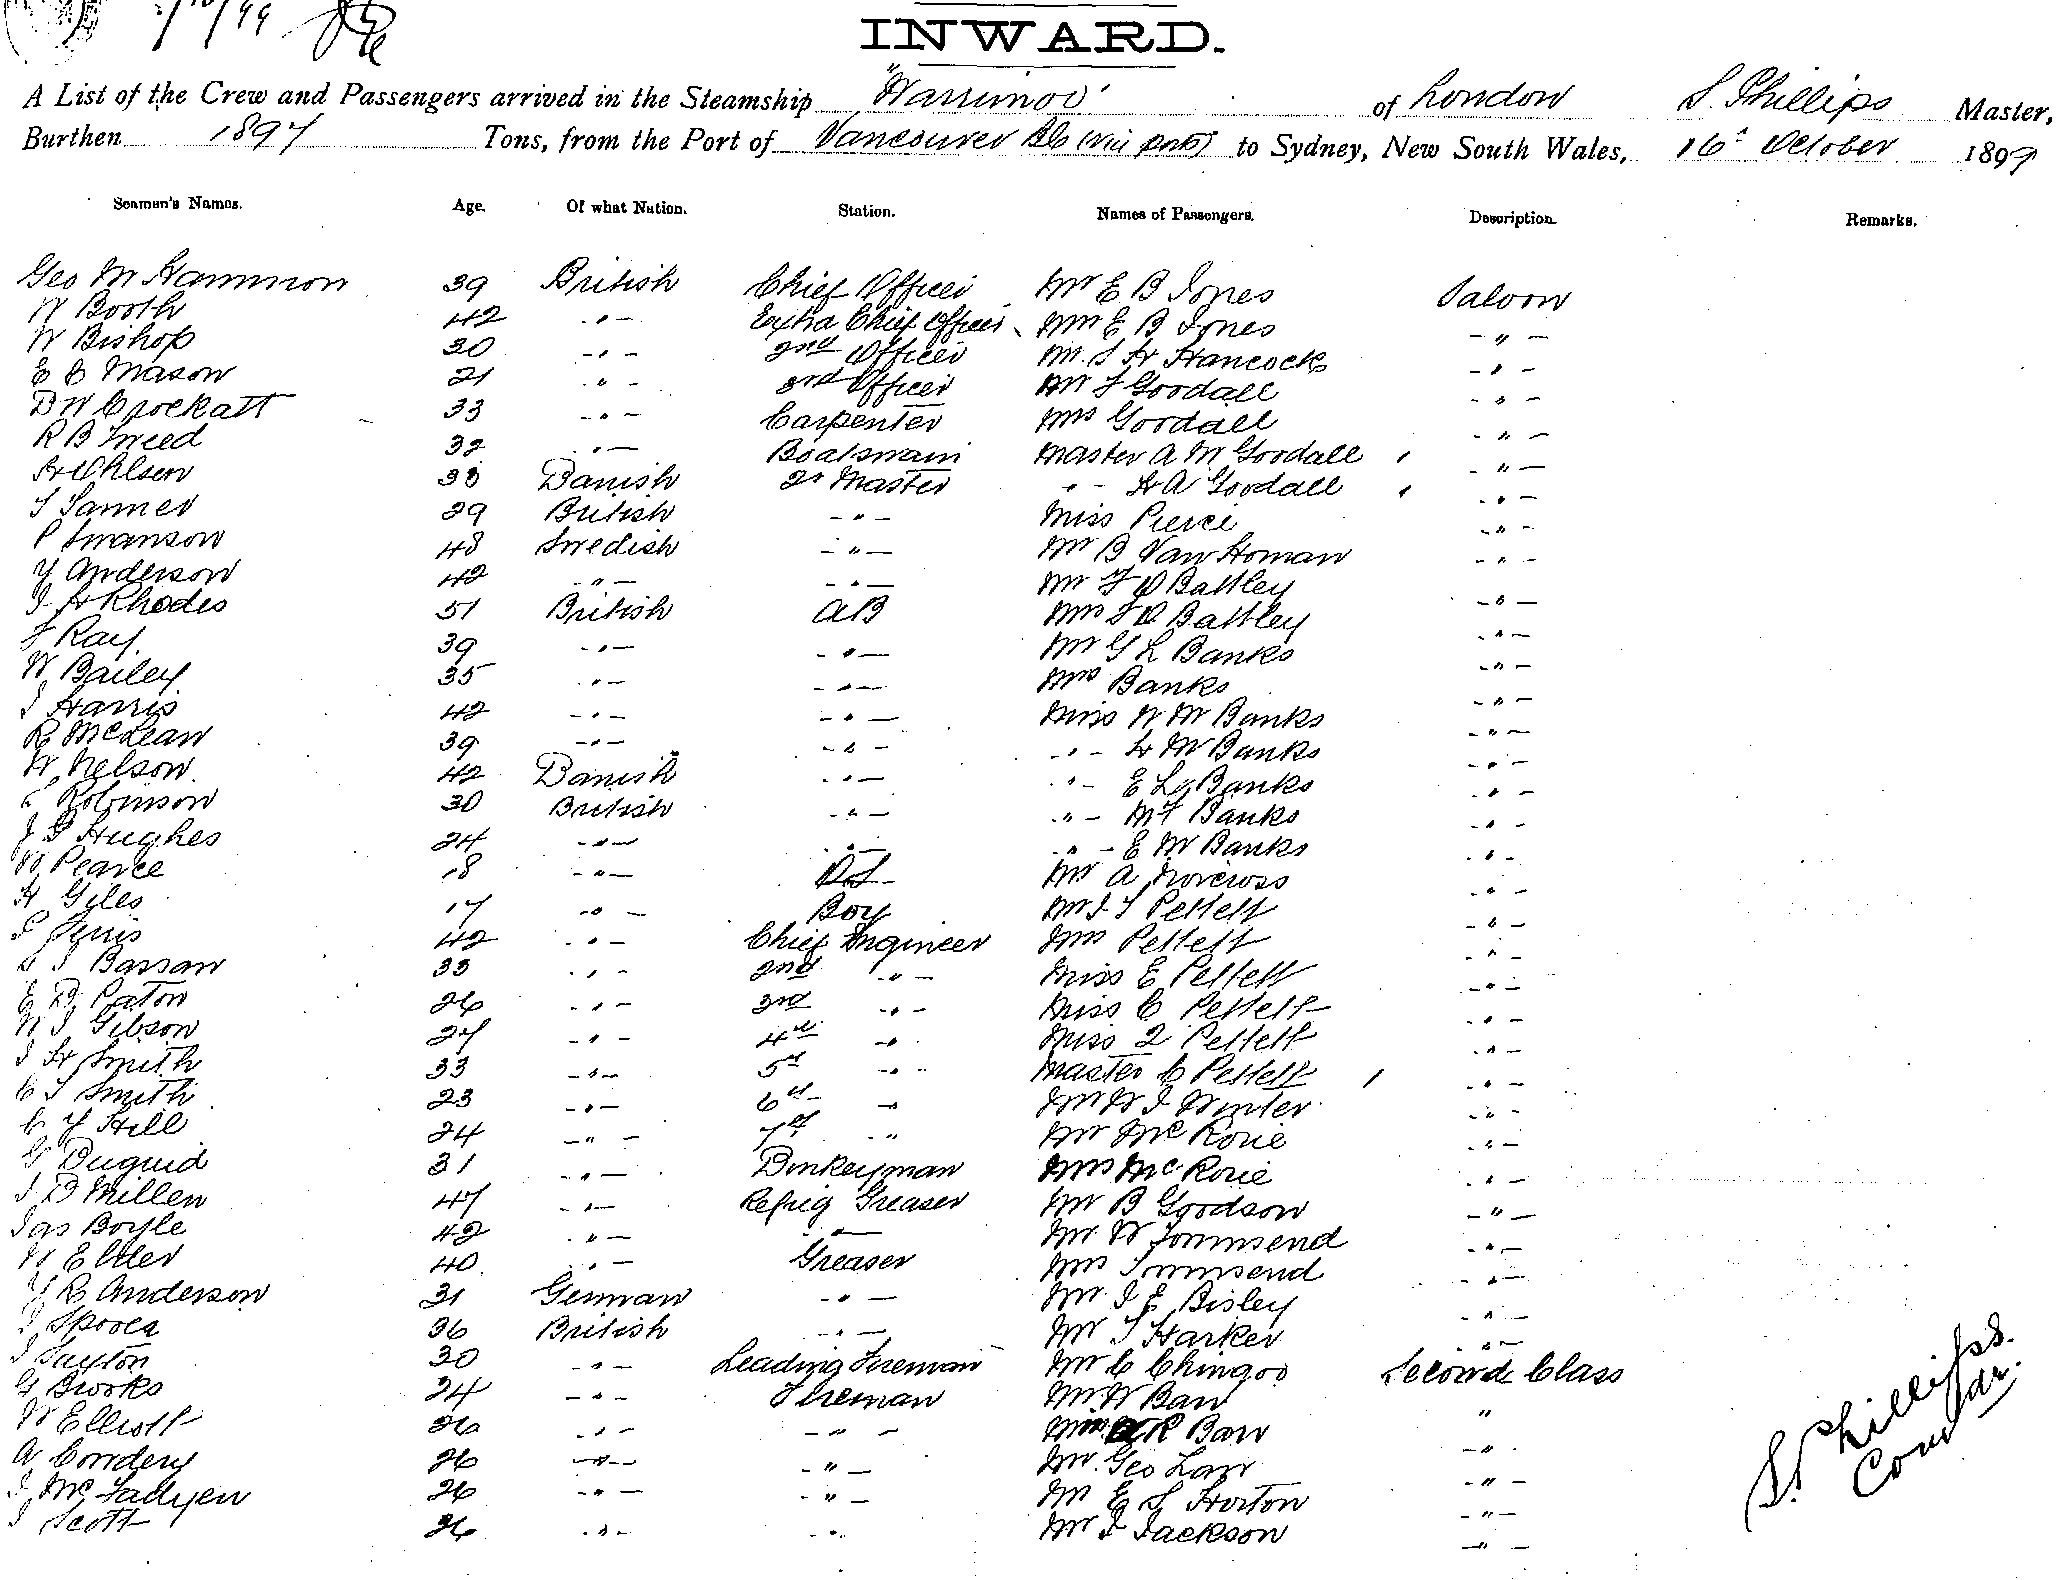 INWARD.
A List of the Crew and Passengers arrived in the Steamship "Warrimoo" of London S. Phillips Master,
Burthen 1897 Tons, from the Port of Vancouver BC (via ports) to Sydney, New South Wales, 16th October 1899
Seamen's Names. Age. Of what Nation. Station. Names of Passengers. Description. Remarks.
Geo M Hammon 39 British Chief Officer Mr E B Jones Saloon
W Booth 42 -"- Extra Chief Officer Mrs E B Jones -"-
W Bishop 30 -"- 2nd Officer M. S H Hancock -"-
E C Mason 21 -"- 3rd Officer Mr F Goodall -"-
D W Crockatt 33 -"- Carpenter Mrs Goodall -"-
R B Tweed 32 -"- Boatswain Master A M Goodall -"-
H Ohlsen 38 Danish Qr Master -"- H A Goodall -"-
T Sanner 29 British -"- Miss Pierce -"-
P Swanson 48 Swedish -"- Mr B Van Homan -"-
Y Anderson 42 -"- -"- Mr F D Battley -"-
J H Rhodes 51 British AB Mrs F D Battley -"-
F Ray. 39 -"- -"- Mr G L Banks -"-
W Bailey 35 -"- -"- Mrs Banks -"-
J Harris 42 -"- -"- Miss N M Banks -"-
R McLean 39 -"- -"- -"- H M Banks -"-
W Nelson 42 Danish -"- -"- E L Banks -"-
Robinson 30 British -"- -"- M F Banks -"-
J G Hughes 24 -"- -"- -"- E M Banks -"-
W Pearce 18 -"- OS Mr A Norcross -"-
H Giles 17 -"- Boy Mr J T Pellett -"-
42 -"- Chief Engineer Mrs Pellett -"-
33 -"- 2nd -"- Miss E Pellett -"-
E D Paton 26 -"- 3rd -"- Miss C Pellett -"-
W J Gibson 27 -"- 4th -"- Miss Pellett -"-
J H Smith 33 -"- 5th -"- Master C Pellett -"-
C T Smith 23 -"- 6th -"- Mr W J Winter -"-
C Y Hill 24 -"- 7th -"- Mr McRorie -"-
G Duguid 31 -"- Donkeyman Mrs McRorie -"-
J D Millen 47 -"- Refrig Greaser Mr B Goodson -"-
Jas Boyle 42 -"- -"- Mr W Townsend -"-
W Elder 40 -"- Greaser Mrs Townsend -"-
Y R Anderson 31 German -"- Mr J E Bisley -"-
J Spooler 36 British -"- Mr T Harker -"-
J Saxton 30 -"- Leading Fireman Mr C Chingoo Second Class
G Brooks 24 -"- Fireman Mr W Barr "
W Elliott 26 -"- -"- R Barr -"-
A Cowdery 26 -"- -"- Mr. Geo Law -"-
J McFadyen 26 -"- -"- Mr E S Horton -"-
J Scott 26 -"- -"- Mr J Jackson -"-
S. Phillips.